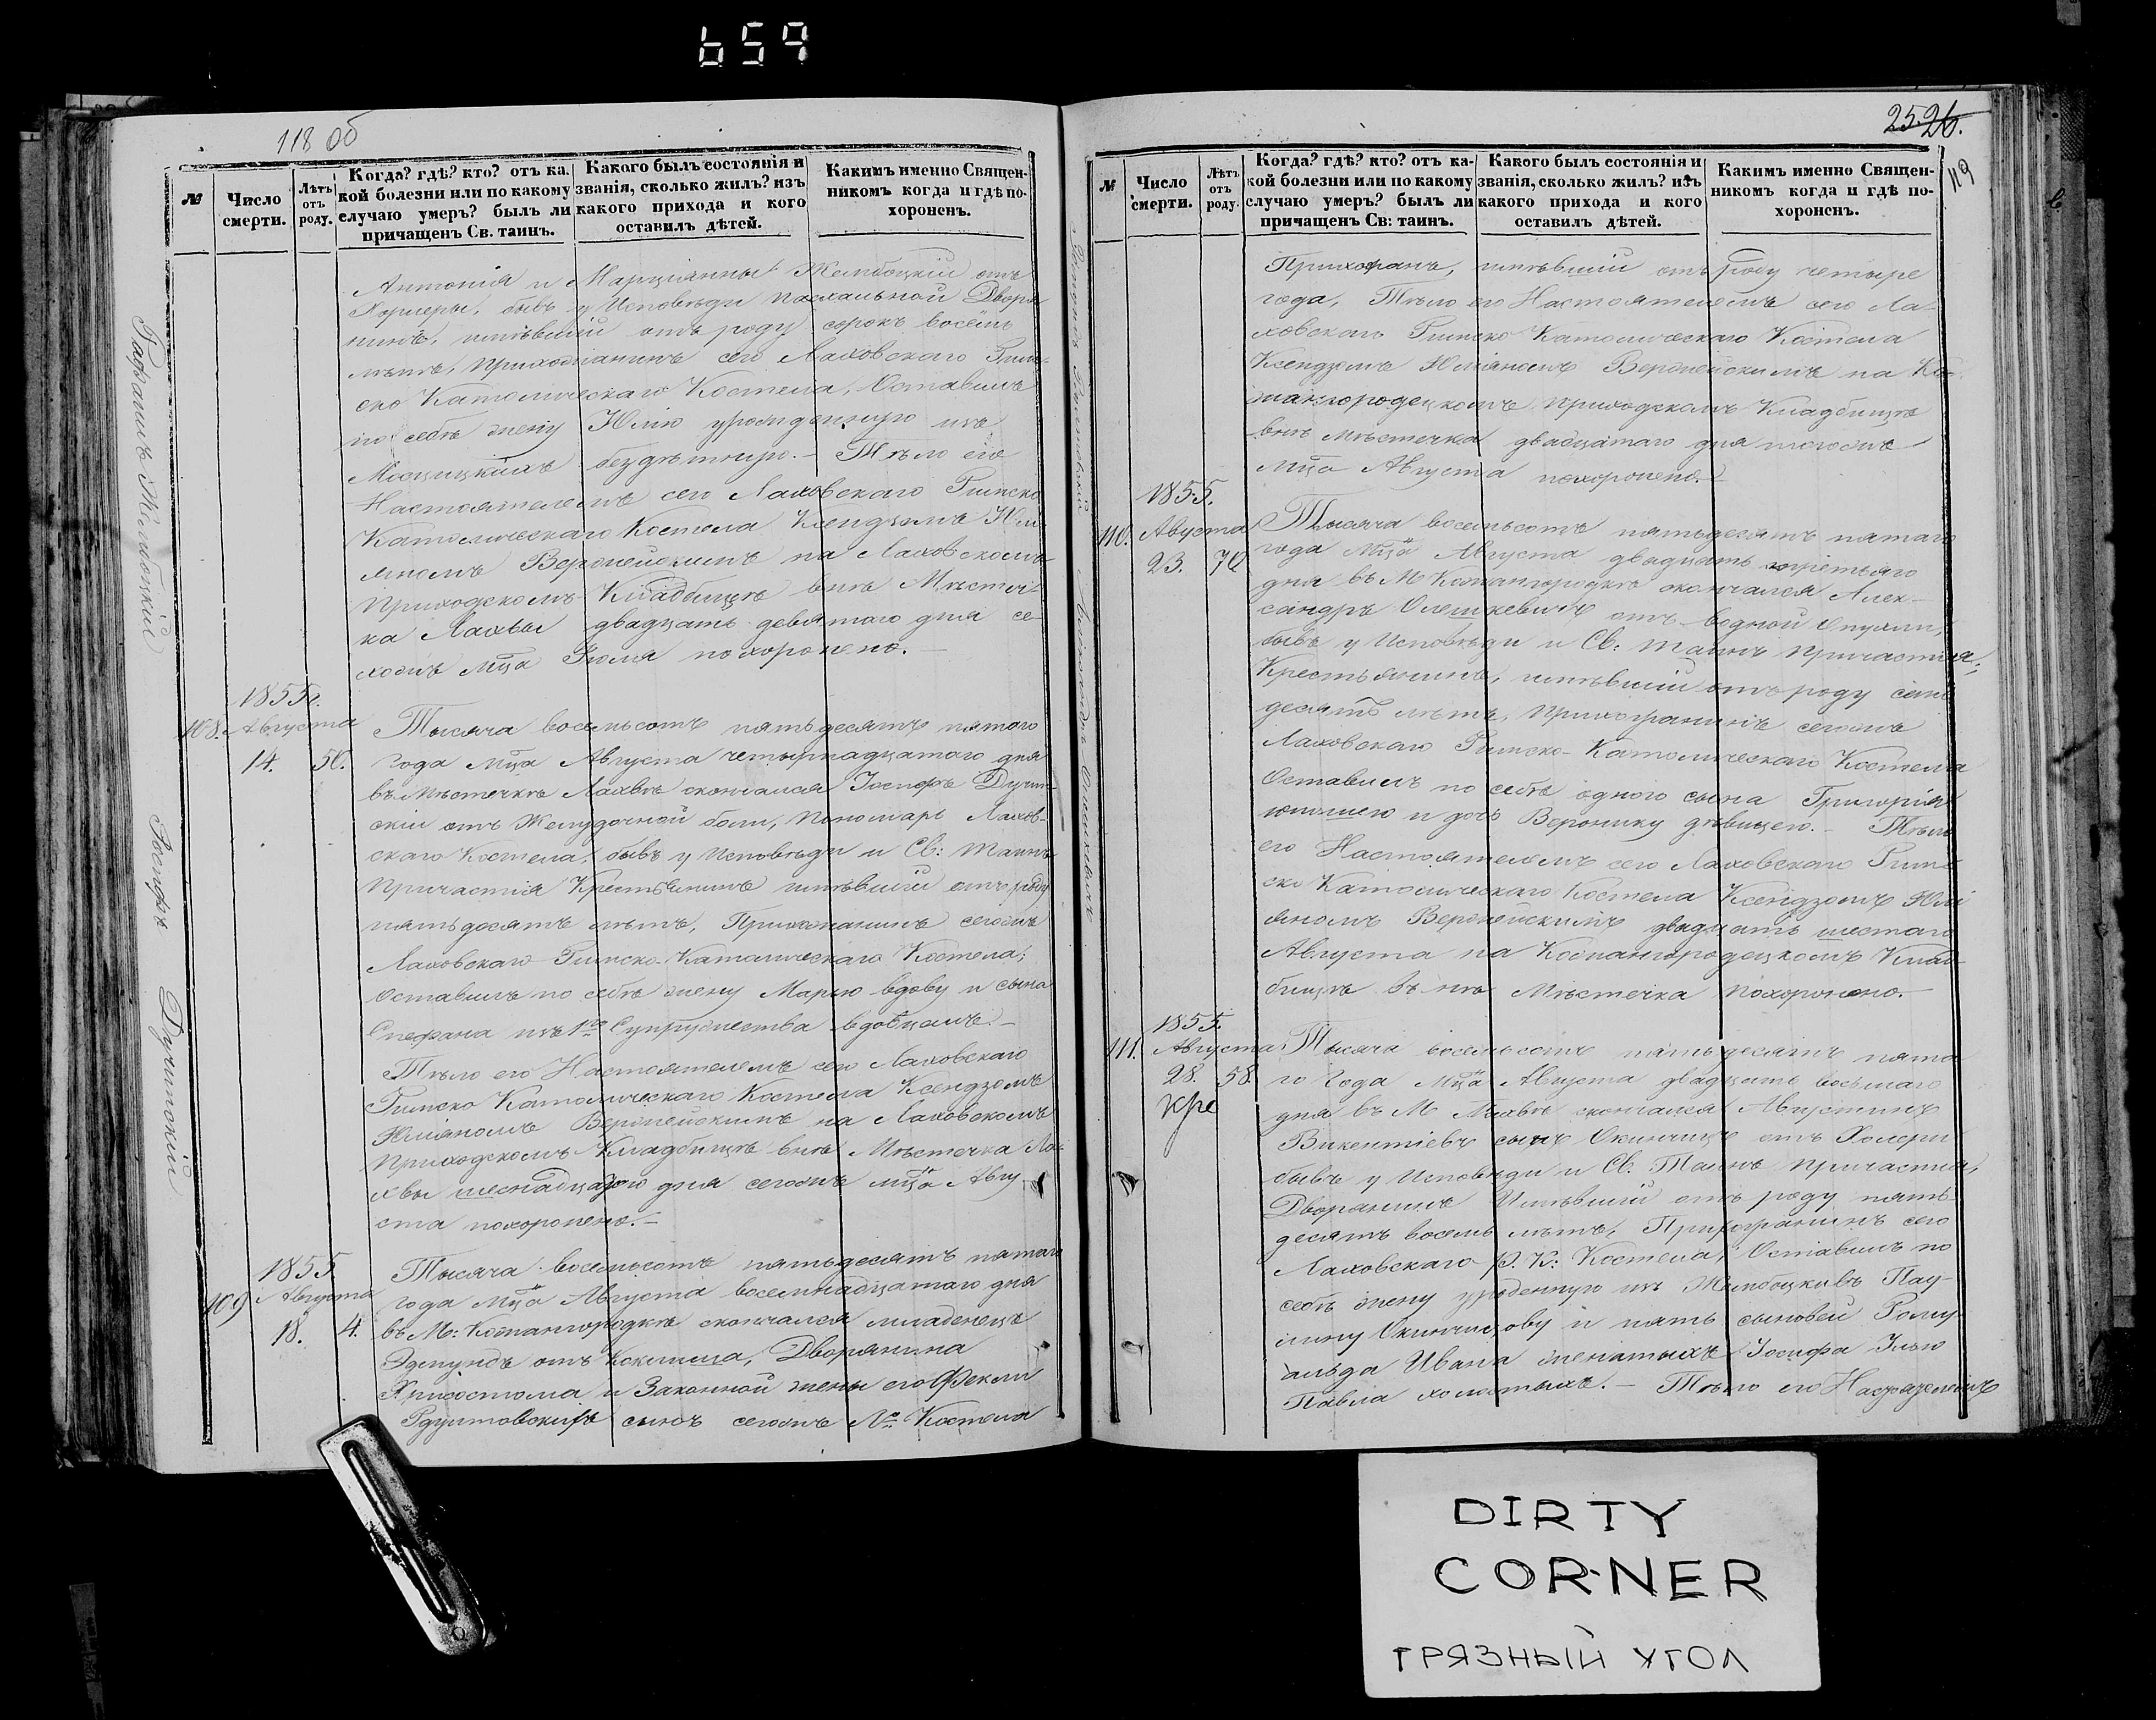 659
118 об
№
Число смерти.
Лѣтъ отъ роду.
Когда? гдѣ? кто? отъ ка-
кой болезни или по какому
случаю умеръ? былъ ли
причащенъ Св. таинъ.
Какого былъ состоянія и
званія, сколько жилъ? изъ
какого прихода и кого
оставилъ дѣтей.
Какимъ именно Священ-
никомъ когда и гдѣ по-
хороненъ.
Антонія и Марціанны Жембоцкій отъ
Холеры, бывъ у Исповѣди пасхальной Дворя
нинъ, имѣвшій отъ роду сорокъ восемь
лѣтъ, прихожанинъ сего Лаховскаго Рим-
ско Католическаго Костела, Оставилъ
по себѣ жену Юлію урожденную изъ
бездѣтную. Тѣло его
Настоятелемъ сего Лаховскаго Римско
Католическаго Костела Ксендзомъ Юлі
яномъ Веронейскимъ на Лаховскомъ
Приходскомъ Кладбищѣ внѣ Мѣстеч-
ка Лахвы двадцать девятого дня се
гожъ мца Іюля похоронено.
1855.
108. Августа
14. 50.
Тысяча восемьсотъ пятьдесятъ пятого
года мца Августа четырнадцатаго дня
въ Мѣстечкѣ Лахвѣ скончался Іосифъ Дучин-
скій отъ Желудочной боли, Пономарь Лахов-
скаго Костела, бывъ у Исповѣди и Св: Таинъ
Причастія Крестьянинъ имѣвшій отъ роду
пятьдесятъ лѣтъ, Прихожанинъ сегожъ
Лаховскаго Римско-Католическаго Костела;
Оставилъ по себѣ жену Марью вдову и сына
Стефана изъ 1го Супружества вдовцемъ.
Тѣло его Настоятелемъ сего Лаховскаго
Римско Католическаго Костела Ксендзомъ
Юліяномъ Веронейскимъ на Лаховскомъ
Приходскомъ Кладбищѣ внѣ Мѣстечка Ла-
хвы шеснадцатого дня сегожъ мца Авгу
ста похоронено.
1855
109 Августа
18. 4.
Тысяча восемьсотъ пятьдесятъ пятого
года мца Августа восемнадцатаго дня
въ М: Кожангородкѣ скончался младенецъ
Эдмундъ отъ Коклюша, Дворянина
Хрисостома и Законной жены его Феклы
Рдултовскихъ сынъ сегожъ Ло Костела
Іосифъ Дучинскій
25. 26.
119
№
Число смерти.
Лѣтъ отъ роду.
Когда? гдѣ? кто? отъ ка-
кой болезни или по какому
случаю умеръ? былъ ли
причащенъ Св: таинъ.
Какого былъ состоянія и
званія, сколько жилъ? изъ
какого прихода и кого
оставилъ дѣтей.
Какимъ именно Священ-
никомъ когда и гдѣ по-
хороненъ.
Прихожанъ, имѣвшій отъ роду четыре
года, Тѣло его Настоятелемъ сего Ла-
ховскаго Римско Католическаго Костела
Ксендземъ Юліаномъ Веронейскимъ на Ко-
жангородецкомъ приходскомъ Кладбищѣ
внѣ мѣстечка двадцатаго дня тогожъ
мца Августа похоронено.
1855.
110. Августа
23. 70
Тысяча восемьсотъ пятьдесятъ пятаго
года мца Августа двадцать третьяго
дня въ М Кожангородкѣ скончался Алек-
сандръ Олешкевичъ отъ водной опухли,
бывъ у Исповѣди и Св: таинъ Причастія,
Крестьянинъ, имѣвшій отъ роду семь
десятъ лѣтъ, Прихожанинъ сегожъ
Лаховскаго Римско-Католическаго Костела
Оставилъ по себѣ одного сына Григорія
юношею и дочь Веронику дѣвицею. Тѣло
его Настоятелемъ сего Лаховскаго Рим-
ско Католическаго Костела Ксендзомъ Юлі
яномъ Веронейскимъ двадцать шестаго
Августа на Кожангородецкомъ Клад-
бищѣ внѣ Мѣстечка похоронено.
1855.
111. Августа
28. 58
Тысяча восемьсотъ пятьдесятъ пята
го Года Мца Августа двадцать восьмаго
дня въ М Лахвѣ скончался Августинъ
Викентіевъ сынъ Окинчицъ отъ Холеры
бывъ у Исповѣди и Св. Таинъ Причастія,
Дворянинъ Имѣвшій отъ роду пять-
десятъ восемь лѣтъ, Прихожанинъ сего
Лаховскаго Р. К: Костела, Оставилъ по
себѣ жену урожденную изъ Жембоцкихъ Пау-
лину Окинчицову и пять сыновей Рому-
альда Ивана женатыхъ Іосифа Илью
Павла холостыхъ. — Тѣло его Настоятелемъ
DIRTY
CORNER
ГРЯЗНЫЙ УГОЛ